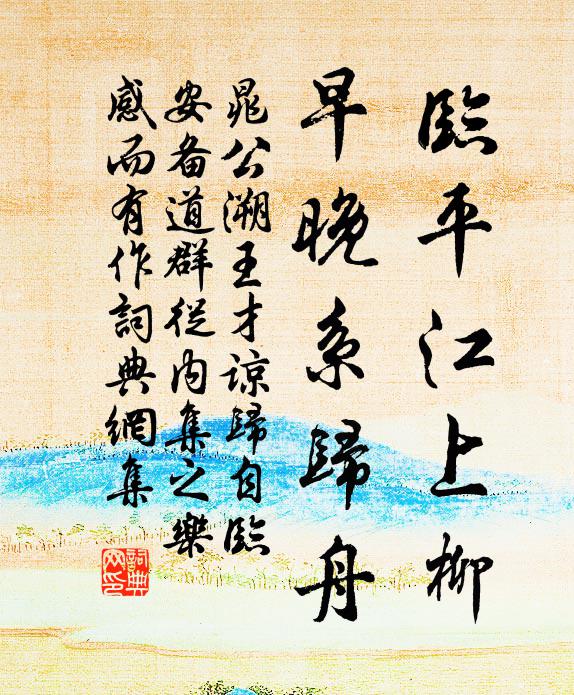 臨平江上柳
早晚系歸舟
晁公溯王才諒歸自臨
安备道群從內集之樂
感而有作詞典網集
詞典
网印